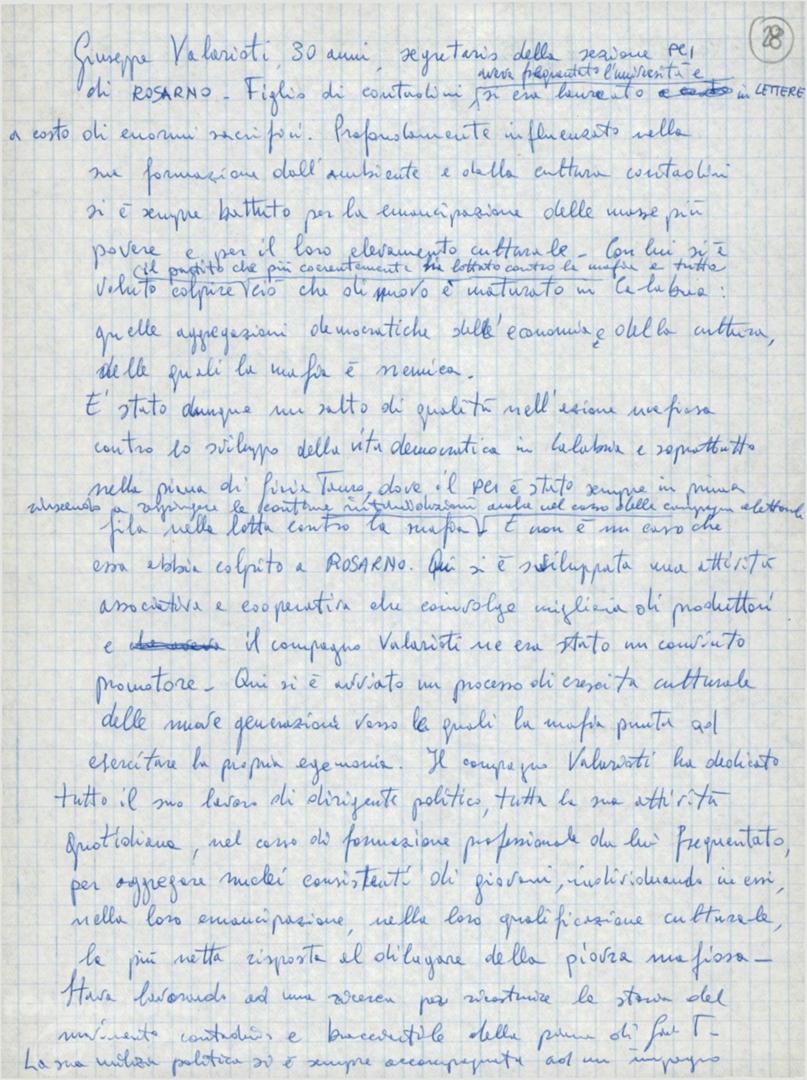 28
Giuseppe Valarioti, 30 anni, segretario della sezione PCI
aveva frequentato l'università e
di ROSARNO - Figlio di contadini si era laureato in LETTERE
a costo di enormi sacrifici. Profondamente influenzato nella
sua formazione dall'ambiente e dalla cultura contadini
si è sempre battuto per la emancipazione delle masse più
povere e per il loro elevamento culturale - Con lui si è
il partito che più coerentemente ha lottato contro la mafia e tutto
voluto colpire ciò che di nuovo è maturato in Calabria:
quelle aggregazioni democratiche dell'economia e della cultura,
delle quali la mafia è nemica.
E' stato dunque un salto di qualità nell'azione mafiosa
contro lo sviluppo della vita democratica in Calabria e soprattutto
nella piana di Gioia Tauro, dove il PCI è stato sempre in prima
riuscendo a respingere le continue intimidazioni anche nel corso delle campagne elettorali
fila nella lotta contro la mafia. E non è un caso che
essa abbia colpito a ROSARNO. Qui si è sviluppata una attività
associativa e cooperativa che coinvolge migliaia di produttori
e il compagno Valarioti ne era stato un convinto
promotore - Qui si è avviato un processo di crescita culturale
delle nuove generazioni verso le quali la mafia punta ad
esercitare la propria egemonia. Il compagno Valarioti ha dedicato
tutto il suo lavoro di dirigente politico, tutta la sua attività
quotidiana, nel corso di formazione professionale da lui frequentato,
per aggregare nuclei consistenti di giovani, individuando in essi,
nella loro emancipazione, nella loro qualificazione culturale,
la più netta risposta al dilagare della piovra mafiosa -
Stava lavorando ad una ricerca per ricostruire la storia del
movimento contadino e bracciantile della piana di Gioia T -
La sua milizia politica si è sempre accompagnata ad un impegno